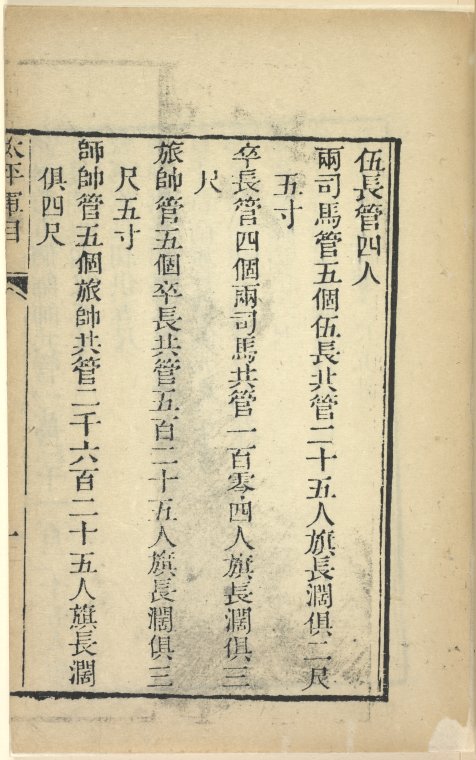 伍長管四人
兩司馬管五個伍長共管二十五人旗長濶俱二尺
五寸
卒長管四個兩司馬共管一百零四人旗長濶俱三
尺
旅帥管五個卒長共管五百二十五人旗長濶俱三
尺五寸
師帥管五個旅帥共管二千六百二十五人旗長濶
俱四尺
太平軍目
一